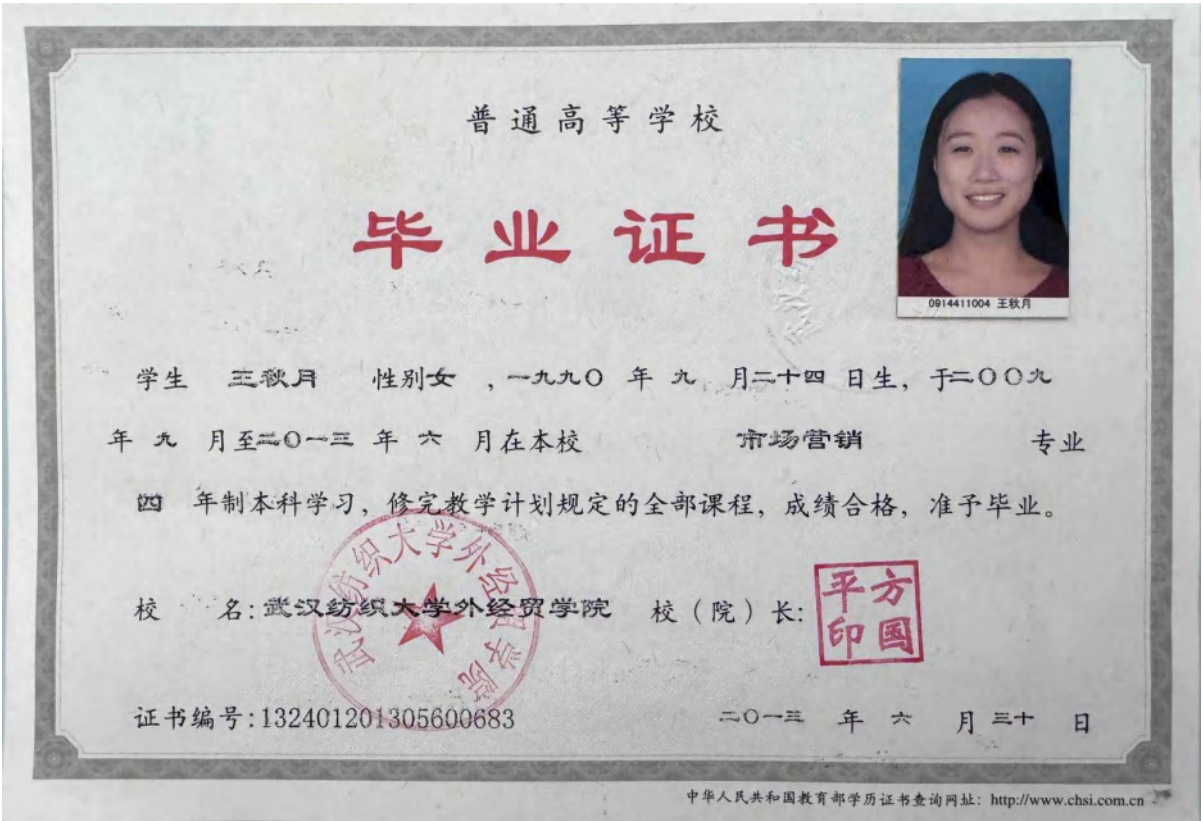 普通高等学校
毕业证书
0914411004 王秋月
学生 王秋月 性别女 ,一九九〇 年 九 月二十四 日生, 于二〇〇九
年 九 月至二〇一三 年 六 月在本校 市场营销 专业
四 年制本科学习, 修完教学计划规定的全部课程, 成绩合格, 准予毕业。
校 名: 武汉纺织大学外经贸学院 校（院）长:
方国平印
武汉纺织大学外经贸学院
证书编号: 132401201305600683
二〇一三 年 六 月 三十 日
中华人民共和国教育部学历证书查询网址: http://www.chsi.com.cn